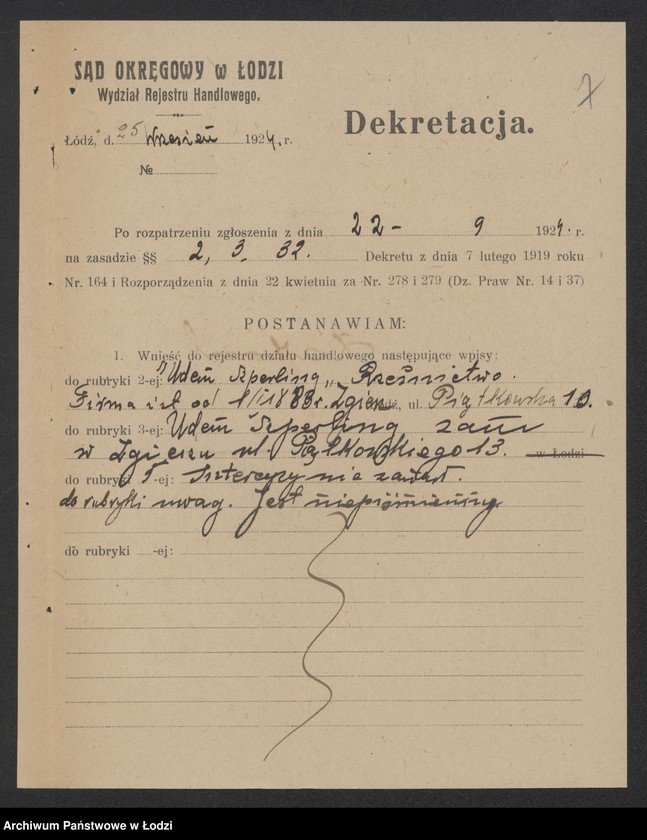 SĄD OKRĘGOWY w ŁODZI
Wydział Rejestru Handlowego.
7
Dekretacja.
Łódź, d. 25 Wrzesień 1924. r.
№
Po rozpatrzeniu zgłoszenia z dnia 22- 9 1924. r.
na zasadzie §§ 2, 3. 32. Dekretu z dnia 7 lutego 1919 roku
Nr. 164 i Rozporządzenia z dnia 22 kwietnia za Nr. 278 i 279 (Dz. Praw Nr. 14 i 37)
POSTANAWIAM:
1. Wnieść do rejestru działu handlowego następujące wpisy:
do rubryki 2-ej: "Udem Szperling" Rzeźnictwo.
Firma ist od 1/I 1883 r. Zgierz, ul. Piątkowska 13.
do rubryki 3-ej: Udem Szperling zam
w Zgierzu ul. Piątkowskiego 13. w Łodzi
do rubryki 5-ej: Intercyzy nie zawarł.
do rubryki uwag. Jest niepiśmienny.
do rubryki -ej:
Archiwum Państwowe w Łodzi